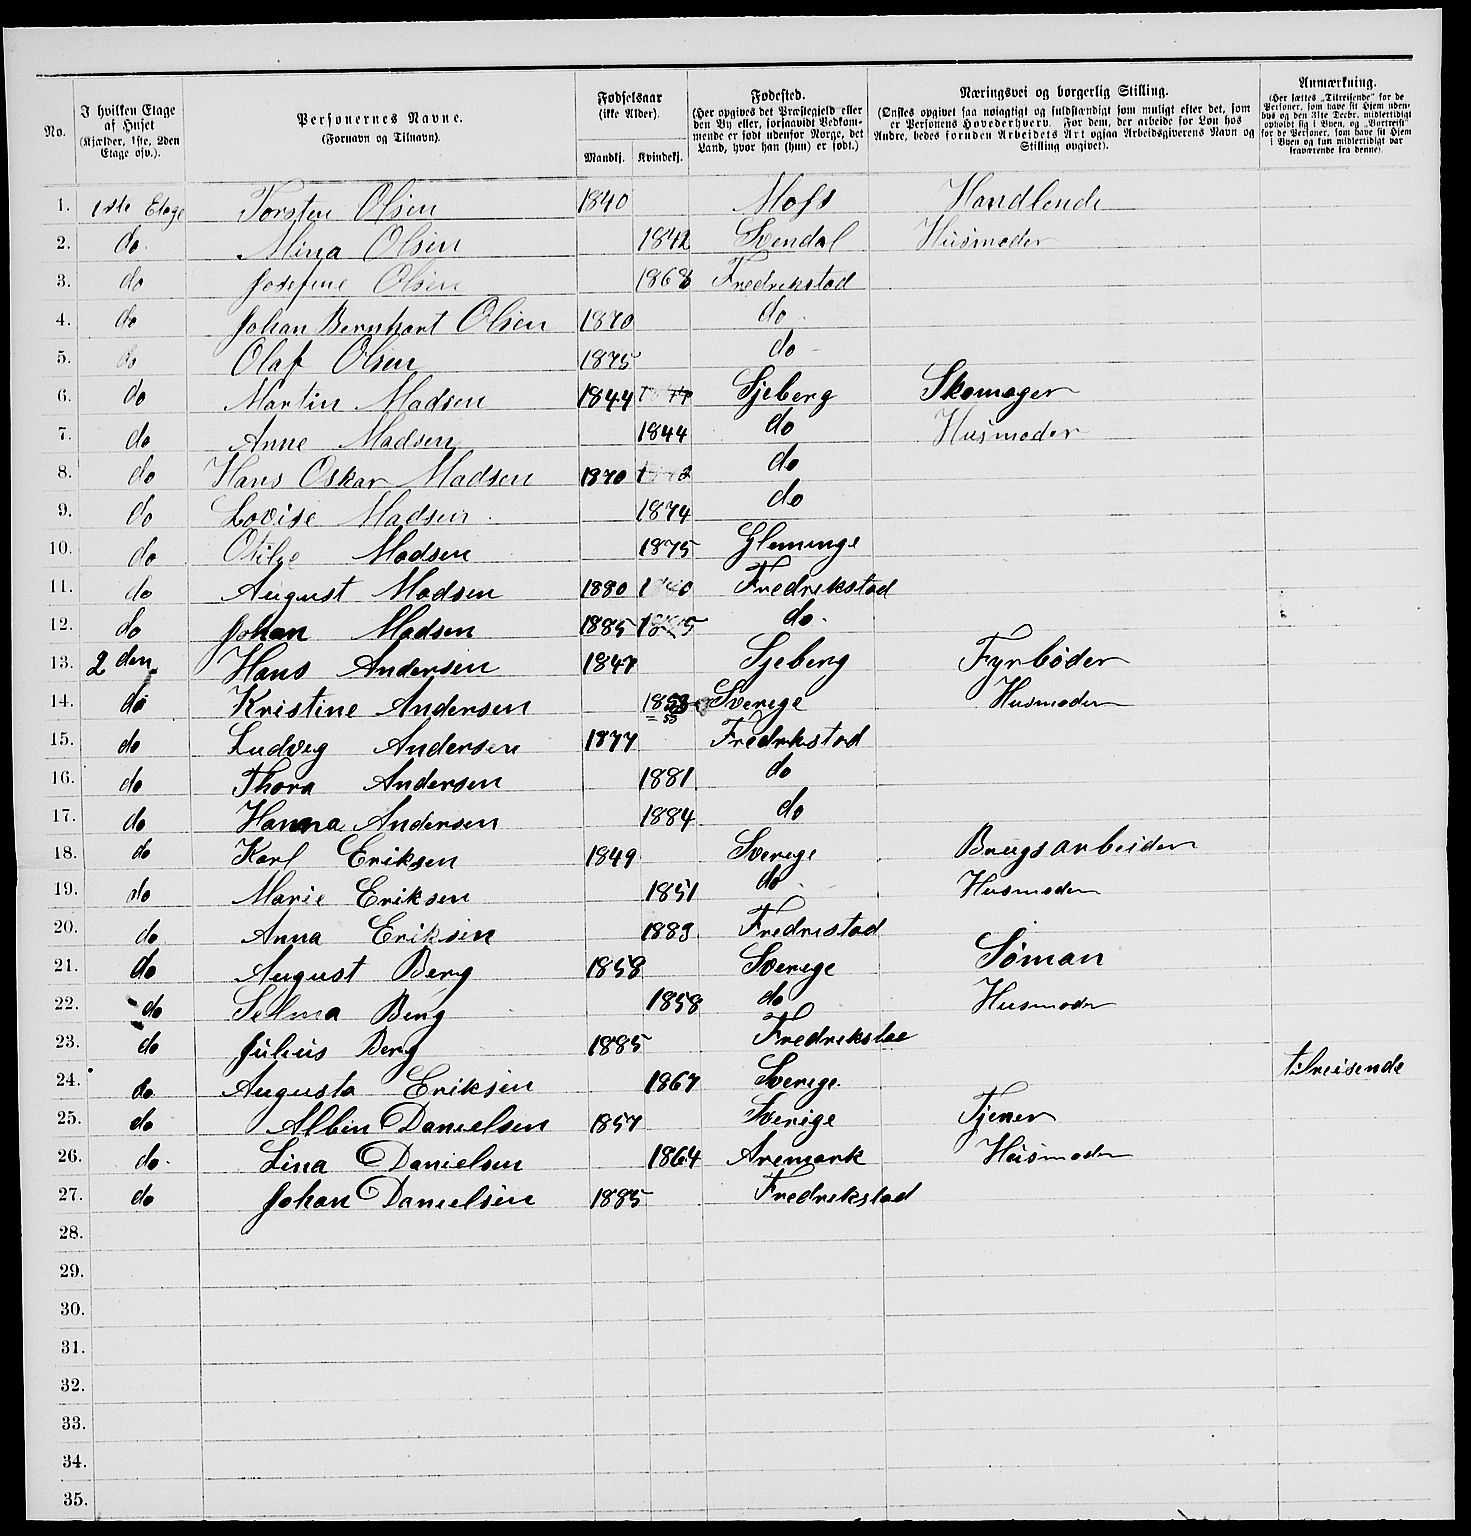 No.
I hvilken Etage af Huset (Kjælder, 1ste, 2den Etage osv.).
Personernes Navne. (Fornavn og Tilnavn).
Fødselsaar (ikke Alder).
Mandkj. Kvindekj.
Fødested. (Her opgives det Præstegjeld eller den By eller, forsaavidt Vedkommende er født udenfor Norge, det Land, hvor han (hun) er født.)
Næringsvei og borgerlig Stilling. (Ønskes opgivet saa nøiagtigt og fuldstændigt som muligt efter det, som er Personens Hovederhverv. For dem, der arbeide for Løn hos Andre, bedes foruden Arbeidets Art ogsaa Arbeidsgiverens Navn og Stilling opgivet).
Anmærkning. (Her sættes „Tilreisende“ for de Personer, som have sit Hjem udenbys og den 31te Decbr. midlertidigt opholdt sig i Byen, og „Bortreist“ for de Personer, som have sit Hjem i Byen og kun midlertidigt var fraværende fra denne).
1. 1ste Etage Torsten Olsen 1840 Moss Handlende
2. do. Mina Olsen 1842 Svendal Husmoder
3. do Josefine Olsen 1868 Fredrekstad
4. do Johan Bernhart Olsen 1870 do
5. do Olaf Olsen 1875 do
6. do Martin Madsen 1844 Sjeberg Skomager
7. do Anne Madsen 1844 do Husmoder
8. do Hans Oskar Madsen 1870 do
9. do Lovise Madsen 1874 do
10. do Otilie Madsen 1875 Gleminge
11. do August Madsen 1880 Fredrikstad
12. do Johan Madsen 1885 do.
13. 2den Hans Andersen 1847 Sjeberg Fyrbøder
14. do Kristine Andersen 1853 55 Sverige Husmoder
15. do Ludvig Andersen 1877 Fredrkstad
16. do Thora Andersen 1881 do
17. do Hanna Andersen 1884 do
18. do Karl Eriksen 1849 Sverige Brugsarbeider
19. do Marie Eriksen 1851 do Husmoder
20. do Anna Eriksen 1883 Fredristad
21. do August Berg 1858 Sverige Søman
22. do Selma Berg 1858 do Husmoder
23. do Julius Berg 1885 Fredrikstad
24. do Augusta Eriksen 1867 Sverige tilreisende
25. do Albin Danielsen 1857 Sverige Tjener
26. do. Lina Danielsen 1864 Aremark Husmoder
27. do Johan Danielsen 1885 Fredrekstad
28.
29.
30.
31.
32.
33.
34.
35.